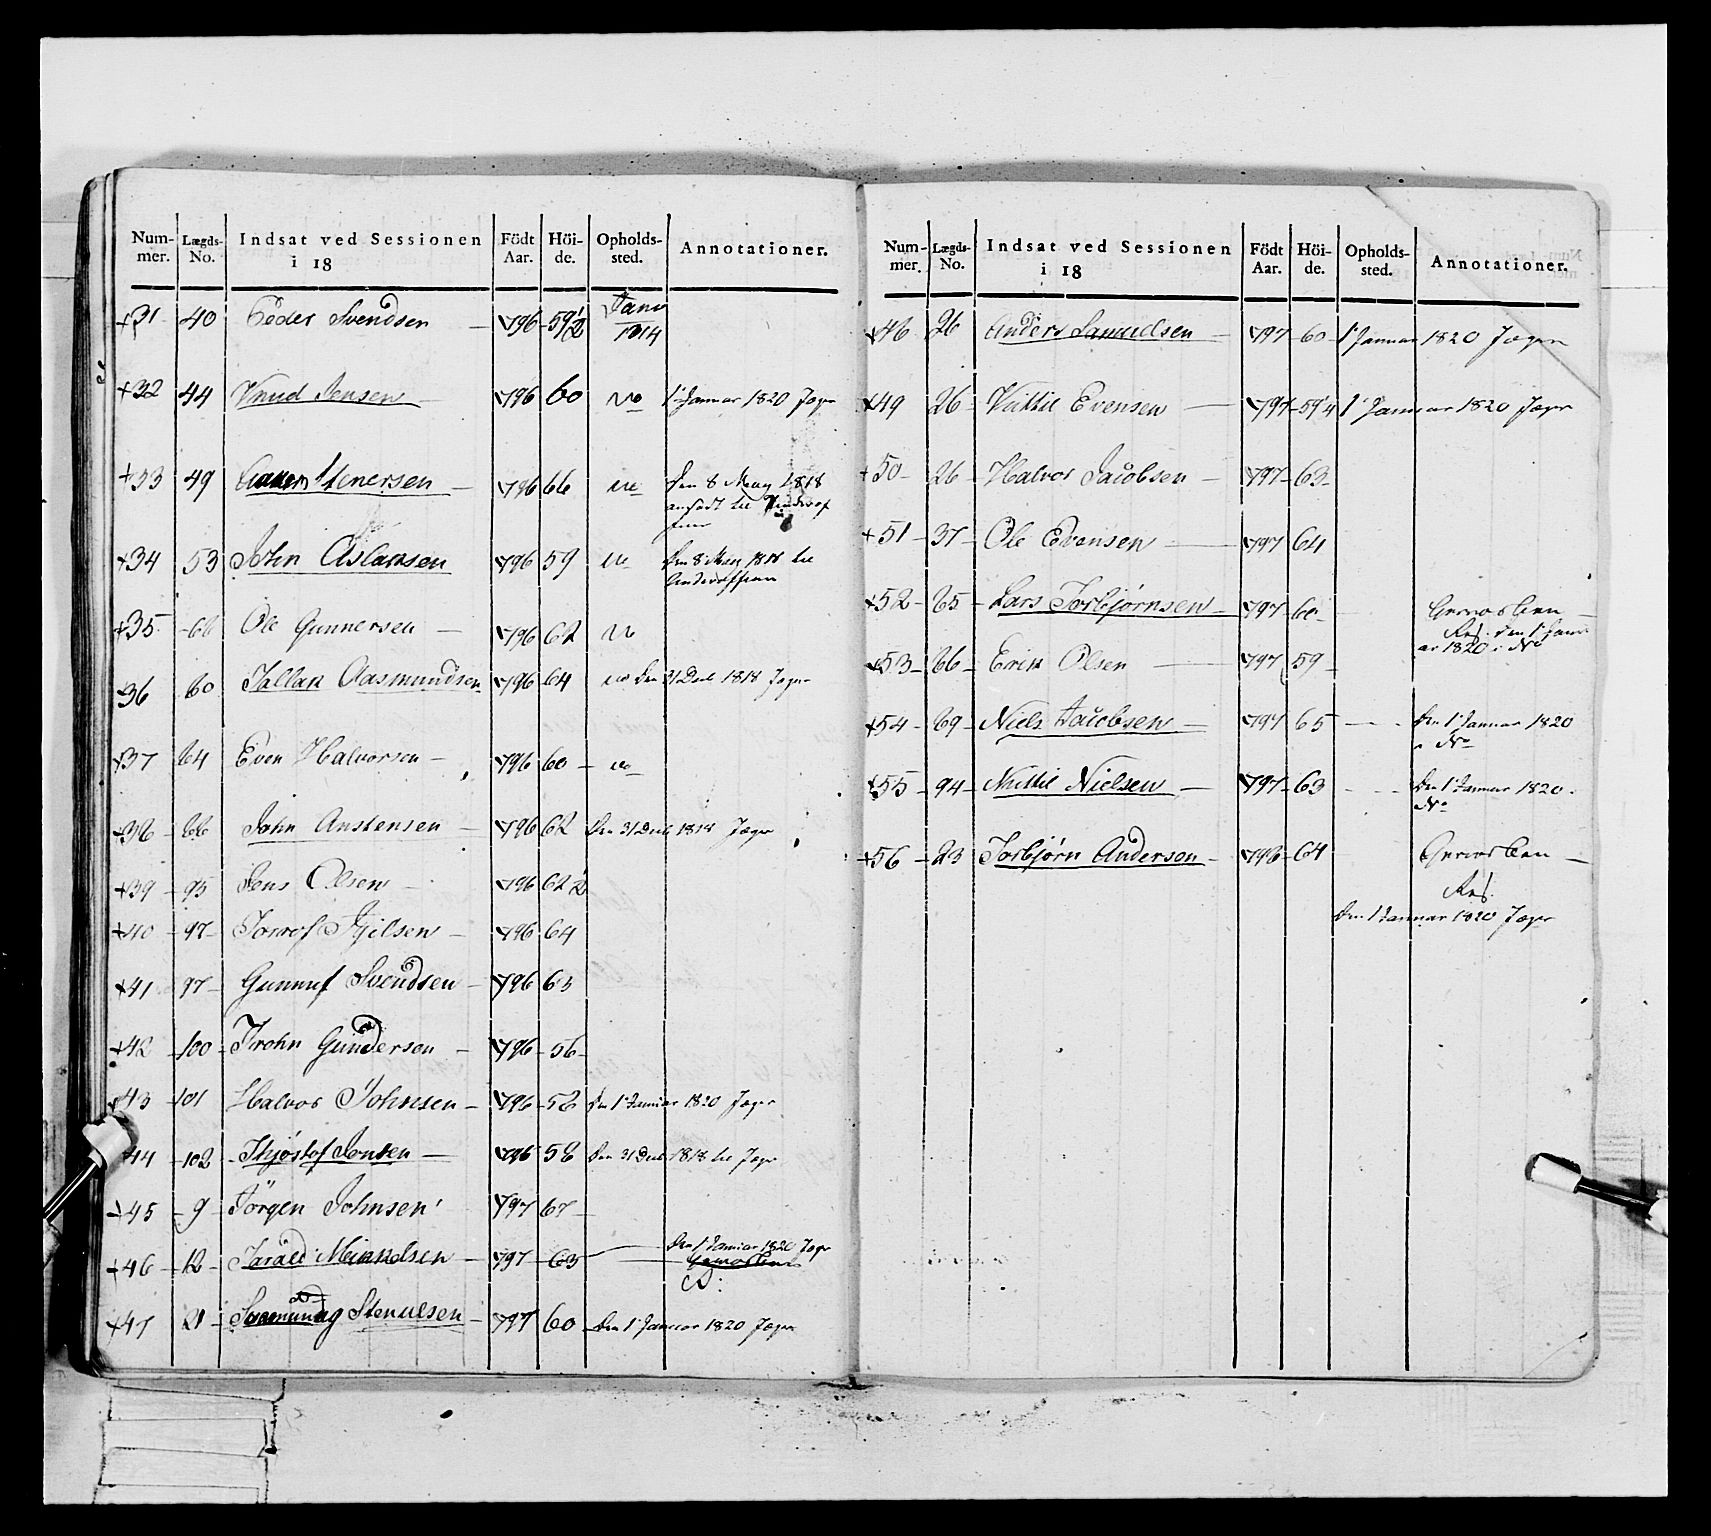 Num- Lægds- Indsat ved Sessionen Födt Höi- Opholds- Annotationer.
mer. No. i 18 Aar. de. sted.
+31 40 Peder Svendsen — 796 59 1/2 Janv 1814
+32 44 Knud Jensen — 796 60 do 1 Januar 1820 Jæger
+33 49 Stenersen — 796 66 do Den 8 May 1818
ansadt til Underof
+34 53 John Aslaksen 796 59 do Den 8 May 1818 til
Underofficeer
+35 66 Ole Gunnersen — 796 62 do
36 60 Tallak Aasmundsen 796 64 do Den 31 Decb 1818 Jæger
+37 64 Even Halvorsen — 796 60 do
+38 66 John Anstensen — 796 62 Den 31 Decb 1818 Jæger
+39 95 Jens Olsen — 796 62 1/2
+40 97 Torrof Kjelsen — 796 64
+41 97 Gunnuf Svendsen — 796 63
+42 100 Trohn Gunderson — 796 56
43 101 Halvor Johnsen — 796 58 Den 1 Januar 1820 Jæger
44 102 Thjostof Jonsen — 796 58 Den 31 Decb 1818 til Jæger
+45 9 Jörgen Johnsen 797 67
Den 1 Januar 1820 Jæger
+46 12 Tarald — 797 63
+47 21 797 60 Den 1 Januar 1820 Jæger
Num- Lægds- Indsat ved Sessionen Födt Höi- Opholds- Annotationer.
mer. No. i 18 Aar. de. sted.
+48 26 Anders Samuelsen — 797 60 1 Januar 1820 Jæger
+49 26 Kittil Evensen — 797 59 1/4 1 Januar 1820 Jæger
+50 26 Halvor Jacobsen — 797 63
+51 37 Ole Evensen — 797 64
+52 65 Lars Torbjørnsen — 797 60 —
Res. den 1 Janu
ar 1820
+53 66 Erik Olsen — 797 59
+54 69 Niels Jacobsen — 797 65 Den 1 Januar 1820
+55 94 Kittil Nielsen — 797 63 Den 1 Januar 1820
+56 23 Torbjørn Anderson — 798 64 —
Res.
Den 1 Januar 1820 Jæger